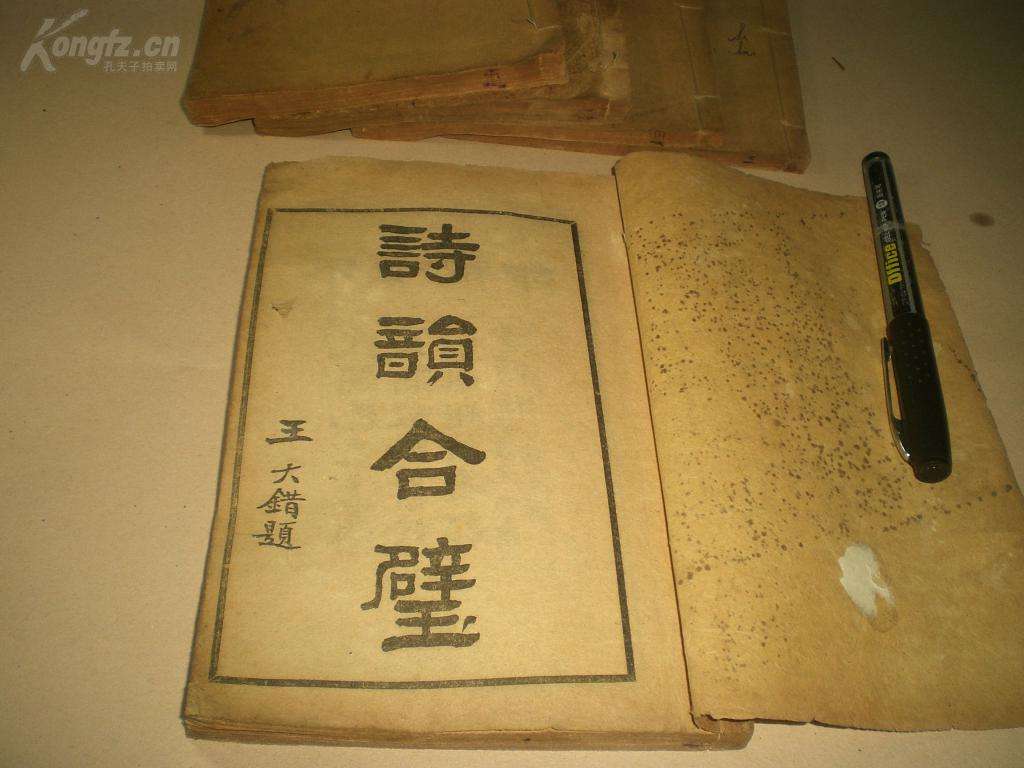 Kongfz.cn
孔夫子拍卖网
詩韻合璧
王大錯題
Office